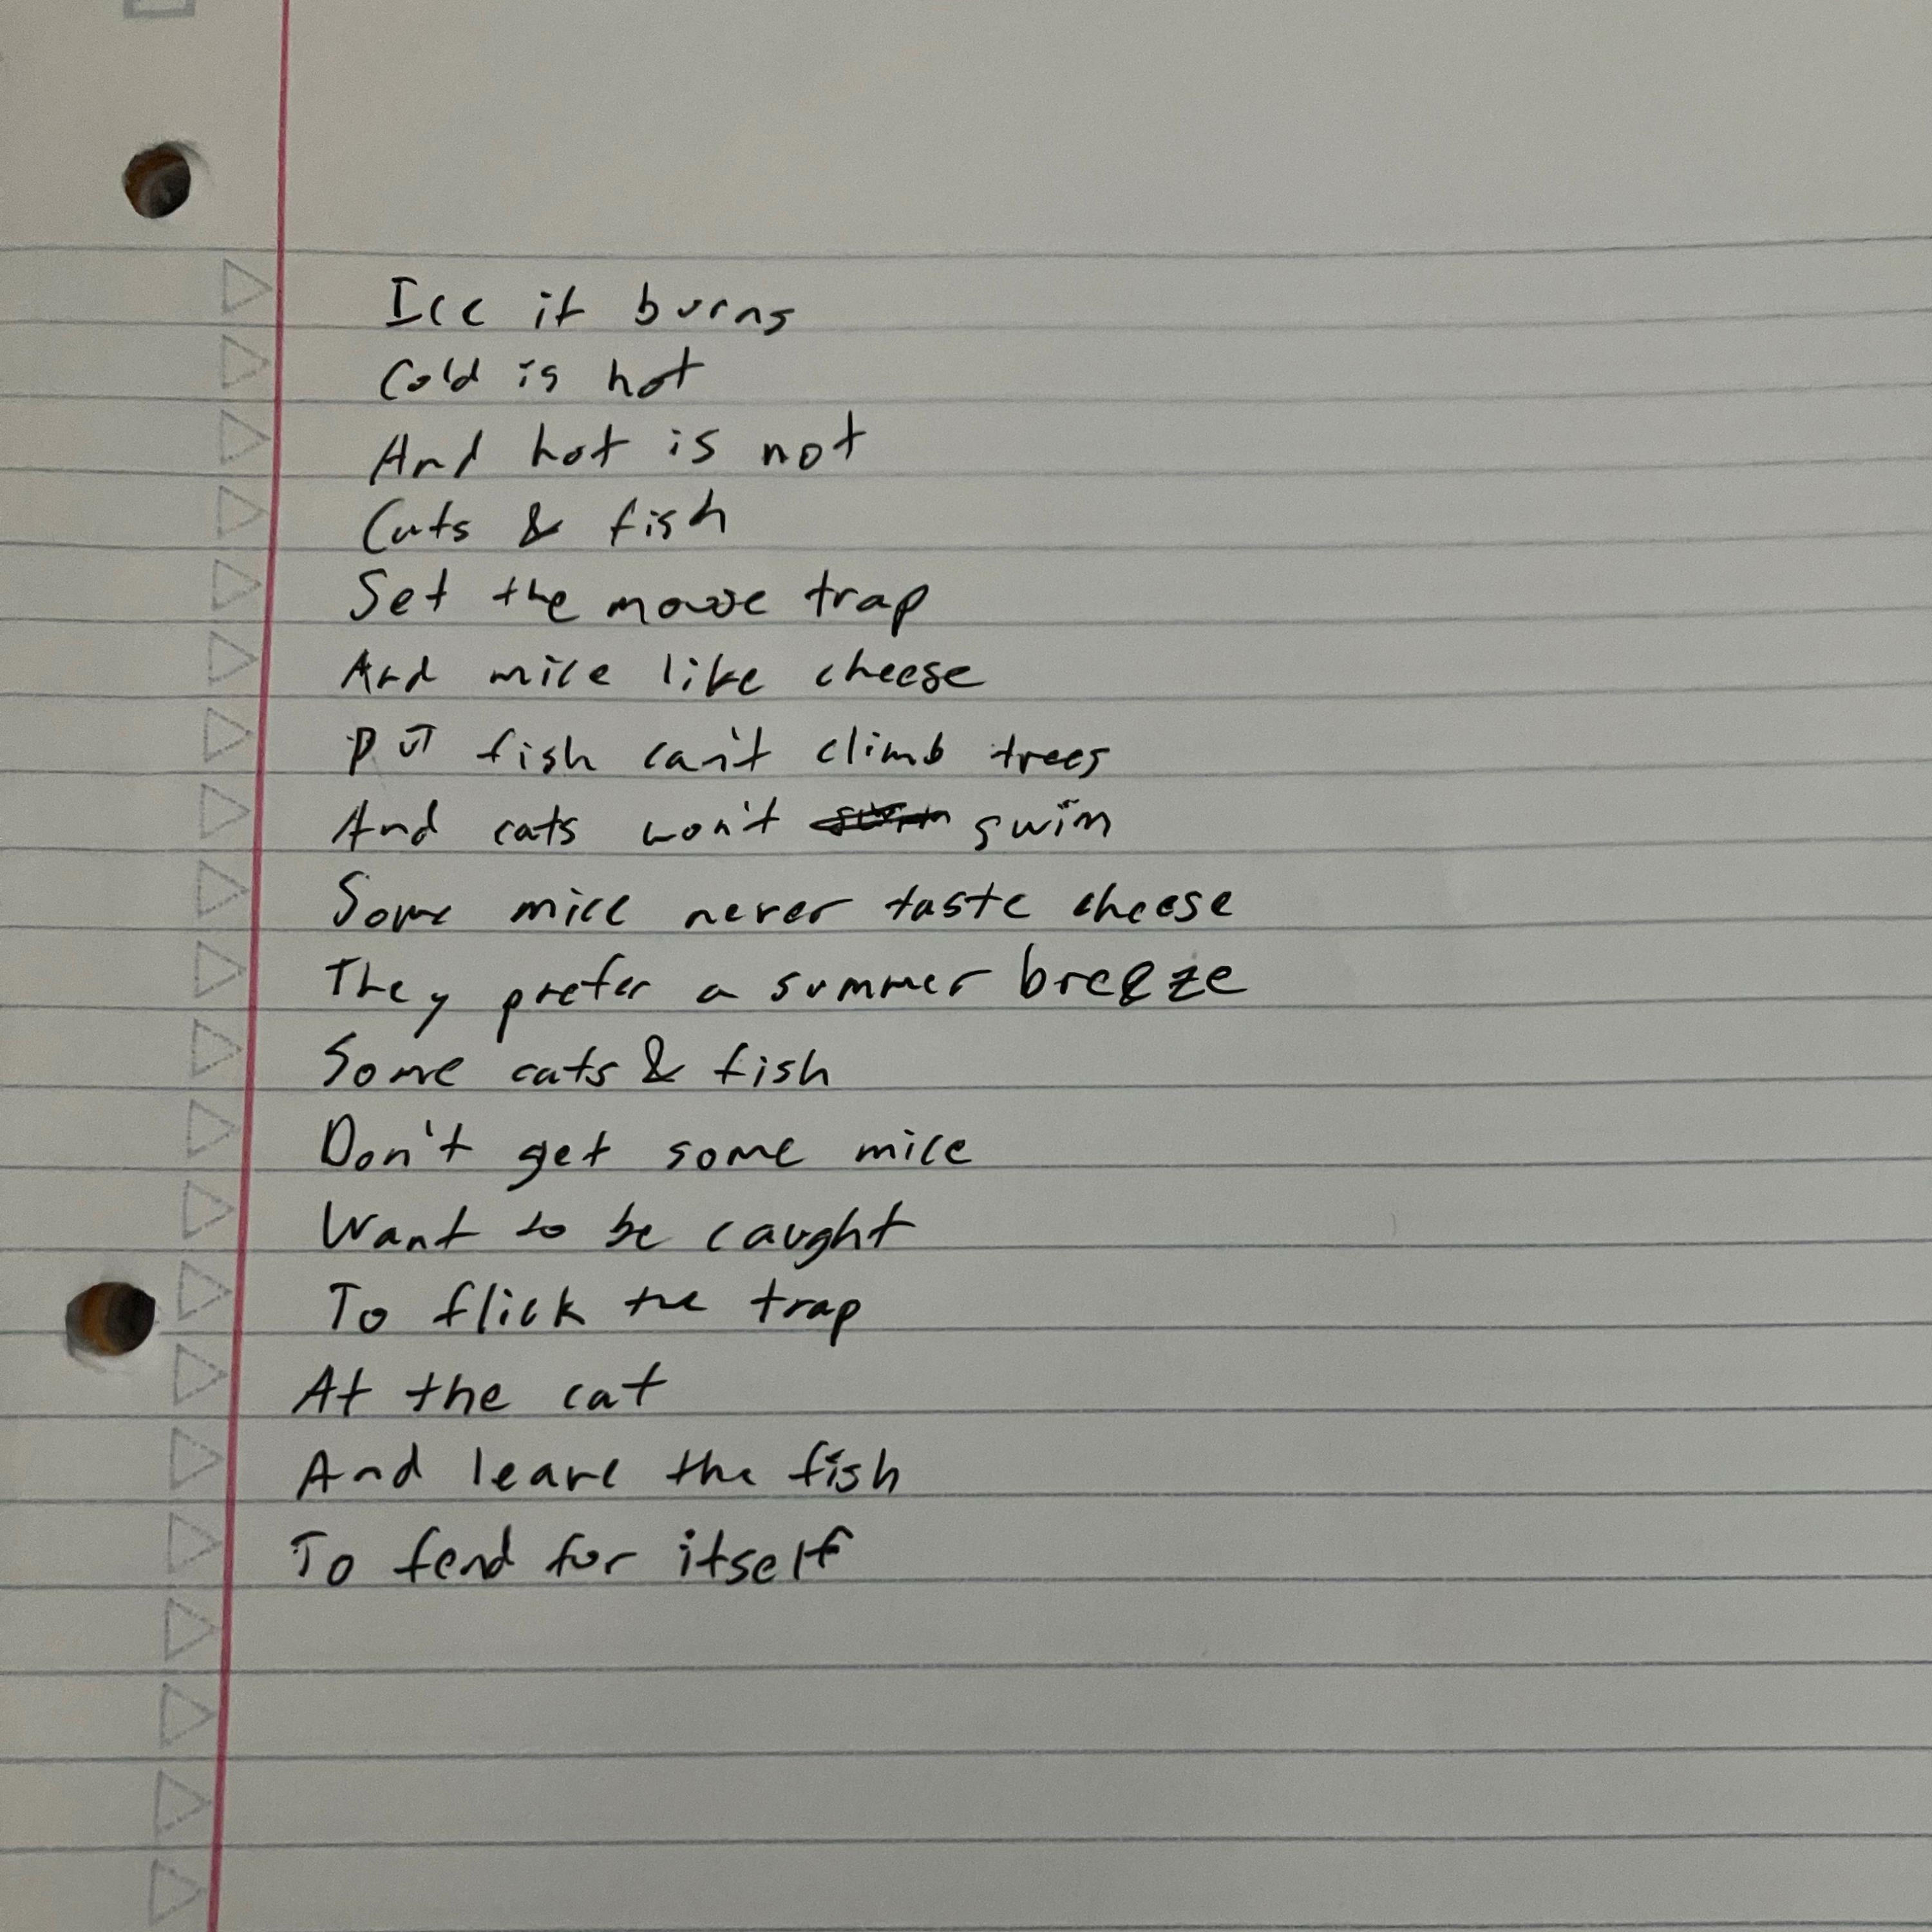 Ice it burns
Cold is hot
And hot is not
Cats & fish
Set the mouse trap
And mice like cheese
PUT fish can't climb trees
And cats won't swim
Some mice never taste cheese
They prefer a summer breeze
Some cats & fish
Don't get some mice
Want to be caught
To flick the trap
At the cat
And leave the fish
To fend for itself